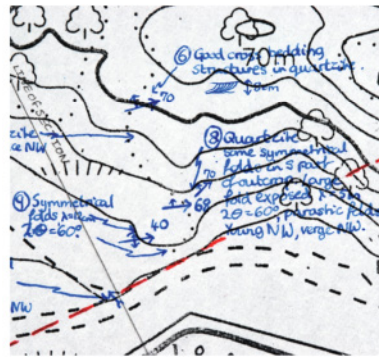 ⑥ Good cross bedding
structures in quartzite
70m
8cm
70
LINE OF SECTION
zite
ce NW
⑧ Quartzite
some symmetrical
folds in S part
of outcrop. Large
fold exposed λ=5m
2θ=60° parasitic folds
Young NW, verge NW.
70
68
④ Symmetrical
folds
2θ=60°
40
NW
10